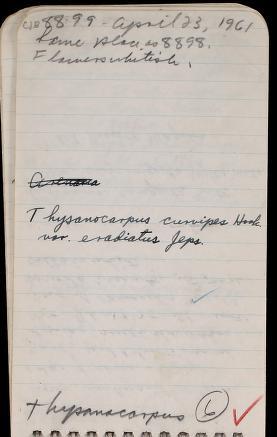 8899 - April 23, 1961
Same place as 8898.
Flowers whitish.
Arenaria
Thysanocarpus curvipes Hook.
var. eradiatus Jeps.
Thysanocarpus 6